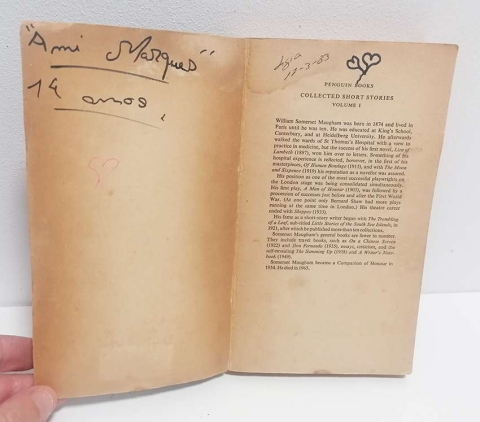 "Ami Marques"
1º anos,
12-3-83
PENGUIN BOOKS
COLLECTED SHORT STORIES
VOLUME I
William Somerset Maugham was born in 1874 and lived in
Paris until he was ten. He was educated at King's School,
Canterbury, and at Heidelberg University. He afterwards
walked the wards of St Thomas's Hospital with a view to
practice in medicine, but the success of his first novel, Liza of
Lambeth (1897), won him over to letters. Something of his
hospital experience is reflected, however, in the first of his
masterpieces, Of Human Bondage (1915), and with The Moon
and Sixpence (1919) his reputation as a novelist was assured.
His position as one of the most successful playwrights on
the London stage was being consolidated simultaneously.
His first play, A Man of Honour (1903), was followed by a
procession of successes just before and after the First World
War. (At one point only Bernard Shaw had more plays
running at the same time in London.) His theatre career
ended with Sheppey (1933).
His fame as a short-story writer began with The Trembling
of a Leaf, sub-titled Little Stories of the South Sea Islands, in
1921, after which he published more than ten collections.
Somerset Maugham's general books are fewer in number.
They include travel books, such as On a Chinese Screen
(1922) and Don Fernando (1935), essays, criticism, and the
self-revealing The Summing Up (1938) and A Writer's Note-
book (1949).
Somerset Maugham became a Companion of Honour in
1954. He died in 1965.